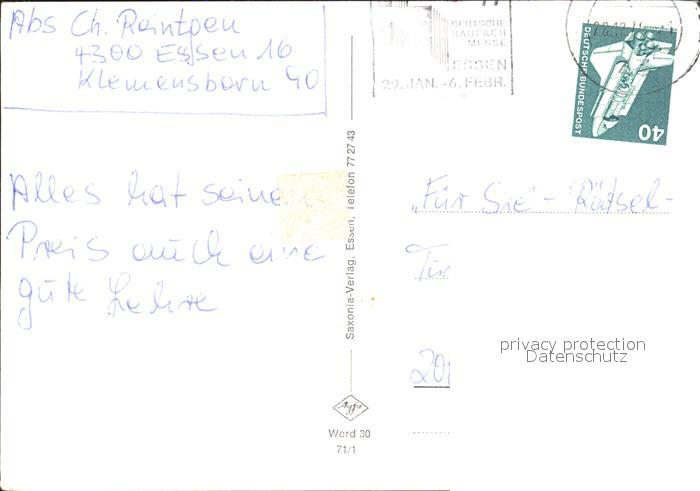 Abs Ch. Reintgen
4300 Essen 16
Klemensborn 40
Alles hat seine
Preis auch eine
gute Lehre
Saxonia-Verlag, Essen, Telefon 77 27 43
Agfa
Werd 30
71/1
DEUTSCHE
BAUFACH
MESSE
ESSEN
29. JAN. -6. FEBR.
DEUTSCHE BUNDESPOST
40
„Für Sie" - Rätsel-
privacy protection
Datenschutz